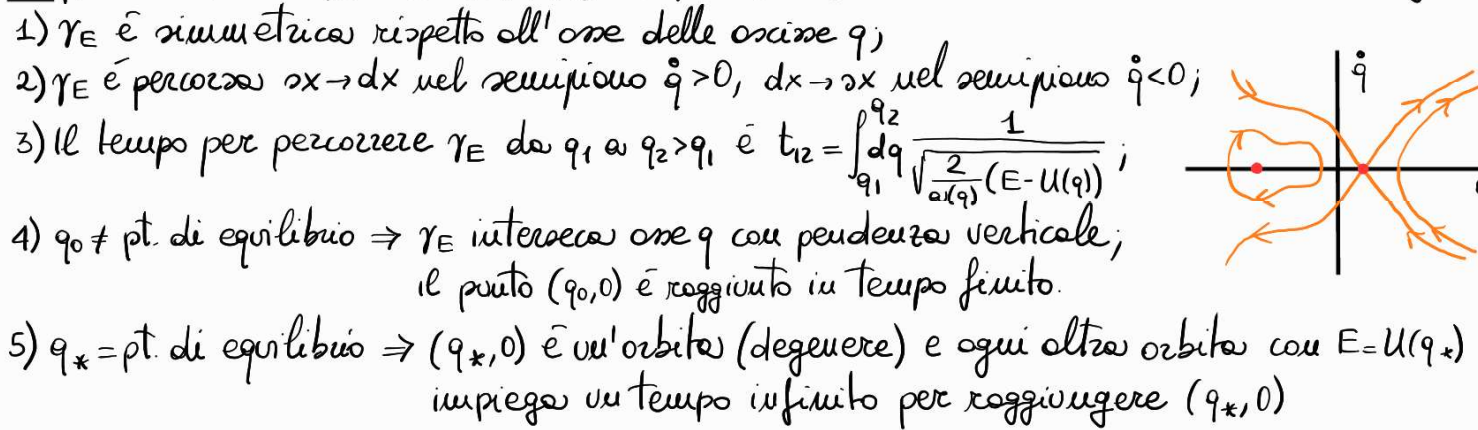 1) γE é simmetrica rispetto all'asse delle ascisse q;
2) γE é percorsa sx→dx nel semipiano q̇>0, dx→sx nel semipiano q̇<0;
3) Il tempo per percorrere γE da q1 a q2>q1 é t12 = ∫_{q1}^{q2} dq 1/√(2/a(q) (E-U(q))) ;
4) q0 ≠ pt. di equilibrio ⇒ γE interseca asse q con pendenza verticale;
il punto (q0,0) é raggiunto in tempo finito.
5) q* = pt. di equilibrio ⇒ (q*,0) é un'orbita (degenere) e ogni altra orbita con E=U(q*)
impiega un tempo infinito per raggiungere (q*,0)
q̇